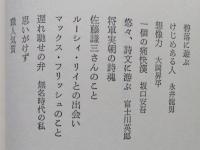 碧落に遊ぶ
けじめある人 永井龍男
想像力 大岡昇平
一個の痛快漢 坂口安吾
悠々、詩文に遊ぶ 富士川英郎
将軍実朝の詩魂
佐藤謙三さんのこと
ルーシィ・リイとの出会い
マックス・フリッシュのこと
遅れ馳せの弁 無名時代の私
思いがけず
職人気質